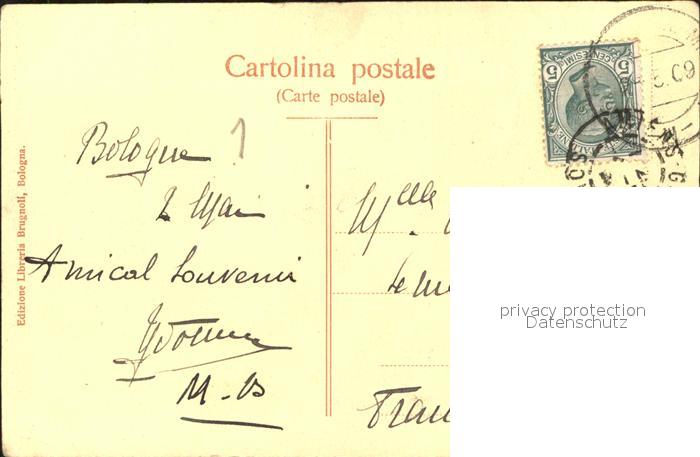 Cartolina postale
(Carte postale)
Edizione Libreria Brugnoli, Bologna.
1
Bologne
2 Mai
Amical Souvenir
Yvonne
M-B
5 CENTESIMI 5
09
Mlle
Le
Fran
privacy protection
Datenschutz